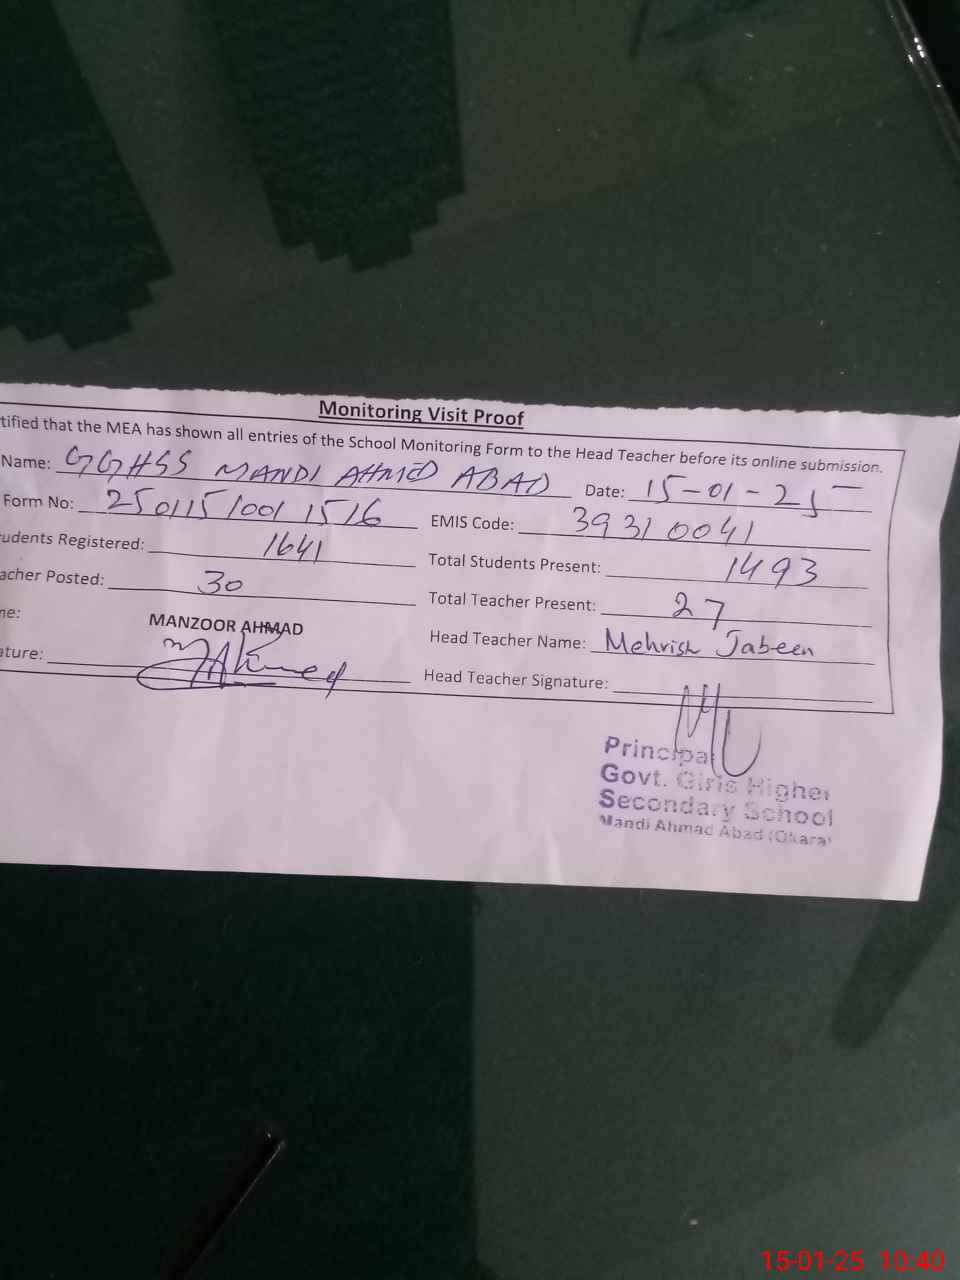 Monitoring Visit Proof
tified that the MEA has shown all entries of the School Monitoring Form to the Head Teacher before its online submission.
Name: GGHSS MANDI AHMED ABAD Date: 15-01-25
Form No: 25011510011516 EMIS Code: 39310041
udents Registered: 1641 Total Students Present: 1493
acher Posted: 30 Total Teacher Present: 27
me: MANZOOR AHMAD Head Teacher Name: Mehrish Jabeen
ature: Head Teacher Signature:
Principal
Govt. Girls Higher
Secondary School
Mandi Ahmad Abad (Okara)
15-01-25 10:40